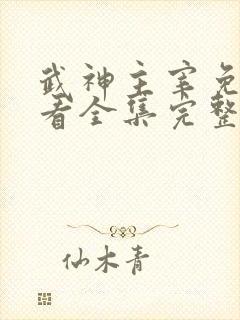 武神主宰免
看全集完整
仙木青